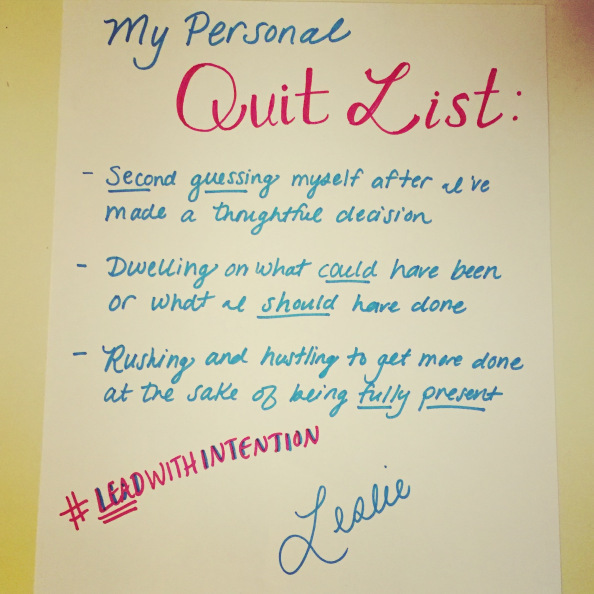 My Personal
Quit List:
- Second guessing myself after I've
made a thoughtful decision
- Dwelling on what could have been
or what I should have done
- Rushing and hustling to get more done
at the sake of being fully present
#LEADWITHINTENTION
Leslie